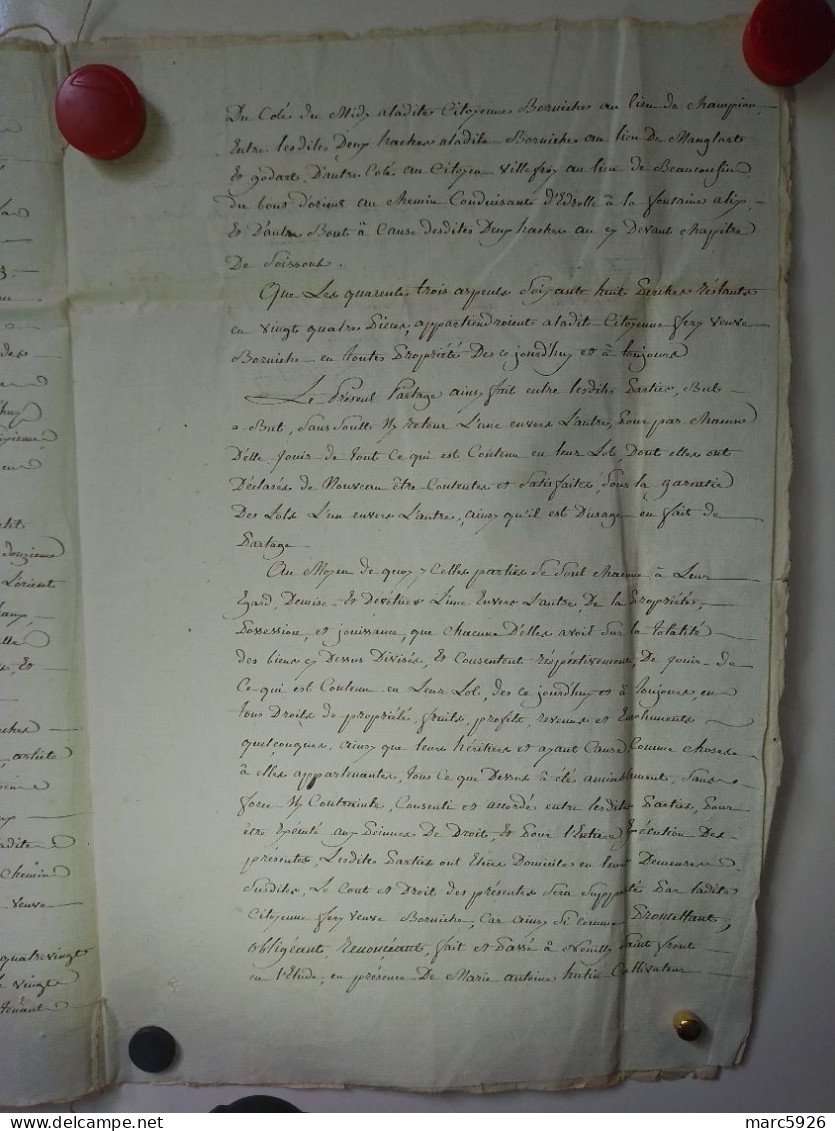 Du Coté du Midy aladite Citoyenne Borniche au lieu de Champion,
Entre lesdites Deux haches aladite Borniche au lieu De Manglart
Et godart, D'autre Coté au Citoyen Villefroy au lieu de Beaucousin
du bout d'orient au Chemin Conduisant d'Edrolle à la fontaine alix,
Et D'autre Bout à Cause desdites Deux haches au cy Devant Chapitre
De Soissons.
Que Les quarente trois arpents Soixante huit Perches restants
en vingt quatre Pieces, appartiendroient aladite Citoyenne fery veuve
Borniche en toutes Propriétés Des ce jourd'huy et à toujours
Le Présent Partage ainsy fait entre lesdites Parties, But
a But, Sans Soulte Ny retour L'une envers L'autre, Pour par Chacune
D'elle Jouir de tout Ce qui est Contenu en leur Lot, Dont elles ont
Déclarés de Nouveau être Contentes et Satisfaites, Sous la garantie
Des Lots L'un envers L'autre, ainsy qu'il est Dusage en fait de
Partage
Au Moyen de quoy ycelles parties Se Sont Chacune à Leur
Egard, Demise Et Dévétues L'une Envers L'autre, De la Propriétés,
Possession, et jouissance, que Chacune D'elles avoit Sur la totalité
des biens cy Dessus Divisés, Et Consentent respectivement, De Jouir de
Ce qui est Contenu en Leur Lot, des ce jourd'huy et à toujours, en
tous Droits de propriété, fruits, profits, revenus et Emoluments
quelconques, ainsy que leurs héritiers et ayant Cause, Comme choses
à elles appartenantes, tous Ce que Dessus à été amiablement, Sans
force Ny Contrainte, Consenti et accordé entre lesdites Parties, Pour
être Exécuté aux Peinnes De Droits, Et Pour l'Entiere Exécution Des
présentes, Lesdites Parties ont Elües Domicile en leurs Demeures
Susdites, Le Cout et Droit des présentes Sera Supporté Par ladite
Citoyenne fery veuve Borniche, Car ainsy Si comme Promettant,
obligéant, renonçéant, fait et Passé à Neuilly Saint front
en l'Etude, en présence De Marie antoine hutin Cultivateur
artiste
douzieme
L'orient
Chemin
veuve
quatrevingt
vingt
tenant
marc5926